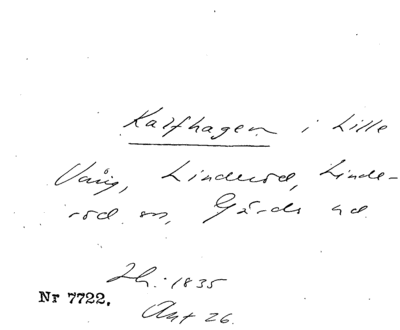 Kalfhagen i Lille
Vång, Linderöd, Linde-
röd sn, Gärds hd
Lh: 1835
Nr 7722.
Akt 26.